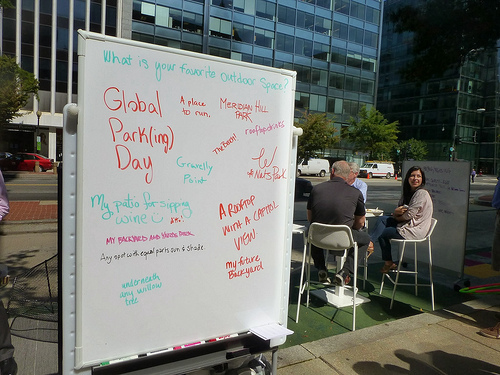 What is your favorite outdoor space?
Global
Park(ing)
Day
A place
to run.
MERIDIAN HILL
PARK
rooftop drinks
The Beach!
Gravelly
Point
@ Nats Park
My patio for sipping
wine
A ROOFTOP
WITH A CAPITOL
VIEW.
MY BACKYARD AND
Any spot with equal parts sun & shade
my future
Backyard
underneath
any willow
tree